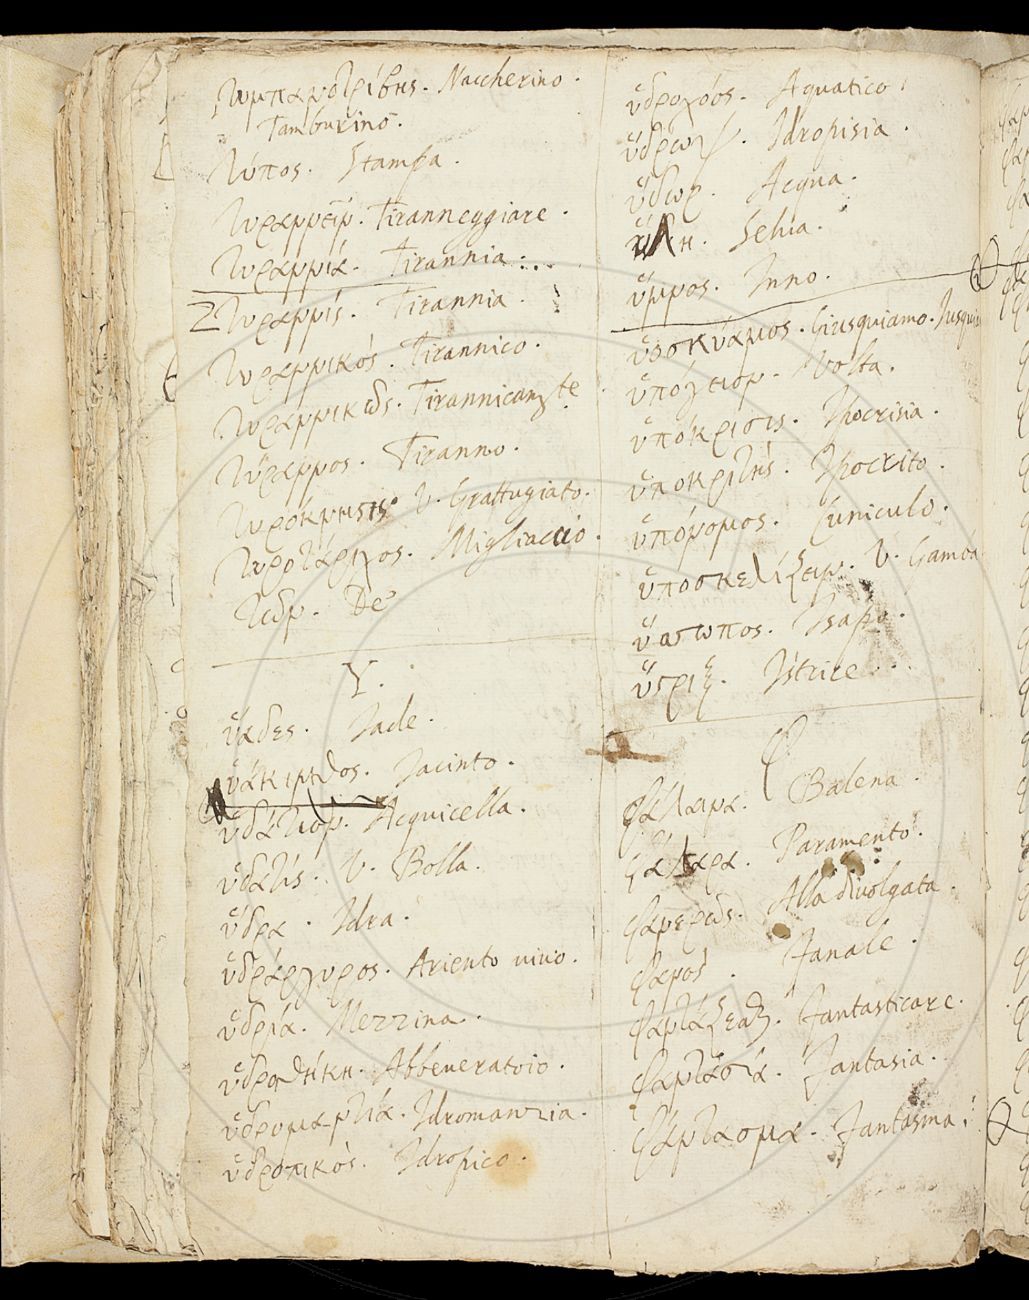 τυμπανοτρίβης. Naccherino.
Tamburino.
τύπος. Stampa.
τυραννεῖν. Tiranneggiare.
τυραννία. Tirannia.
τυραννίς. Tirannia.
τυραννικός. Tirannico.
τυραννικῶς. Tirannicamte
τύραννος. Tiranno.
τυρόκνησις V. Grattugiato.
τυροτάριχος. Migliaccio.
τῶν. De'
Υ.
ὑάδες. Iade.
ὑάκινθος. Iacinto.
ὑδάτιον. Acquicella.
ὑδατίς. V. Bolla.
ὕδρα. Idra.
ὑδράργυρος. Ariento vivo.
ὑδρία. Mezzina.
ὑδροθήκη. Abbeveratoio.
ὑδρομαντία. Idromanzia.
ὑδροπικός. Idropico.
ὑδρολόος. Aquatico.
Idropisia.
ὕδωρ. Acqua.
ὕλη. Selva.
ὕμνος. Inno.
ὑοσκύαμος. Giusquiamo.
ὑπόλειον. Volta.
ὑπόκρισις. Ipocrisia.
ὑποκριτής. Ipocrito.
ὑπόνομος. Cuniculo.
ὑποσκελίζειν. V. Gamba
ὕσσωπος. Isapo.
ὕστριξ. Istrice.
Φ
φάλαινα. Balena.
φάλαρα. Paramento.
φανερῶς. Alla divolgata.
φανός. Fanale.
φαντάζεσθαι. Fantasticare.
φαντασία. Fantasia.
φάντασμα. Fantasma.